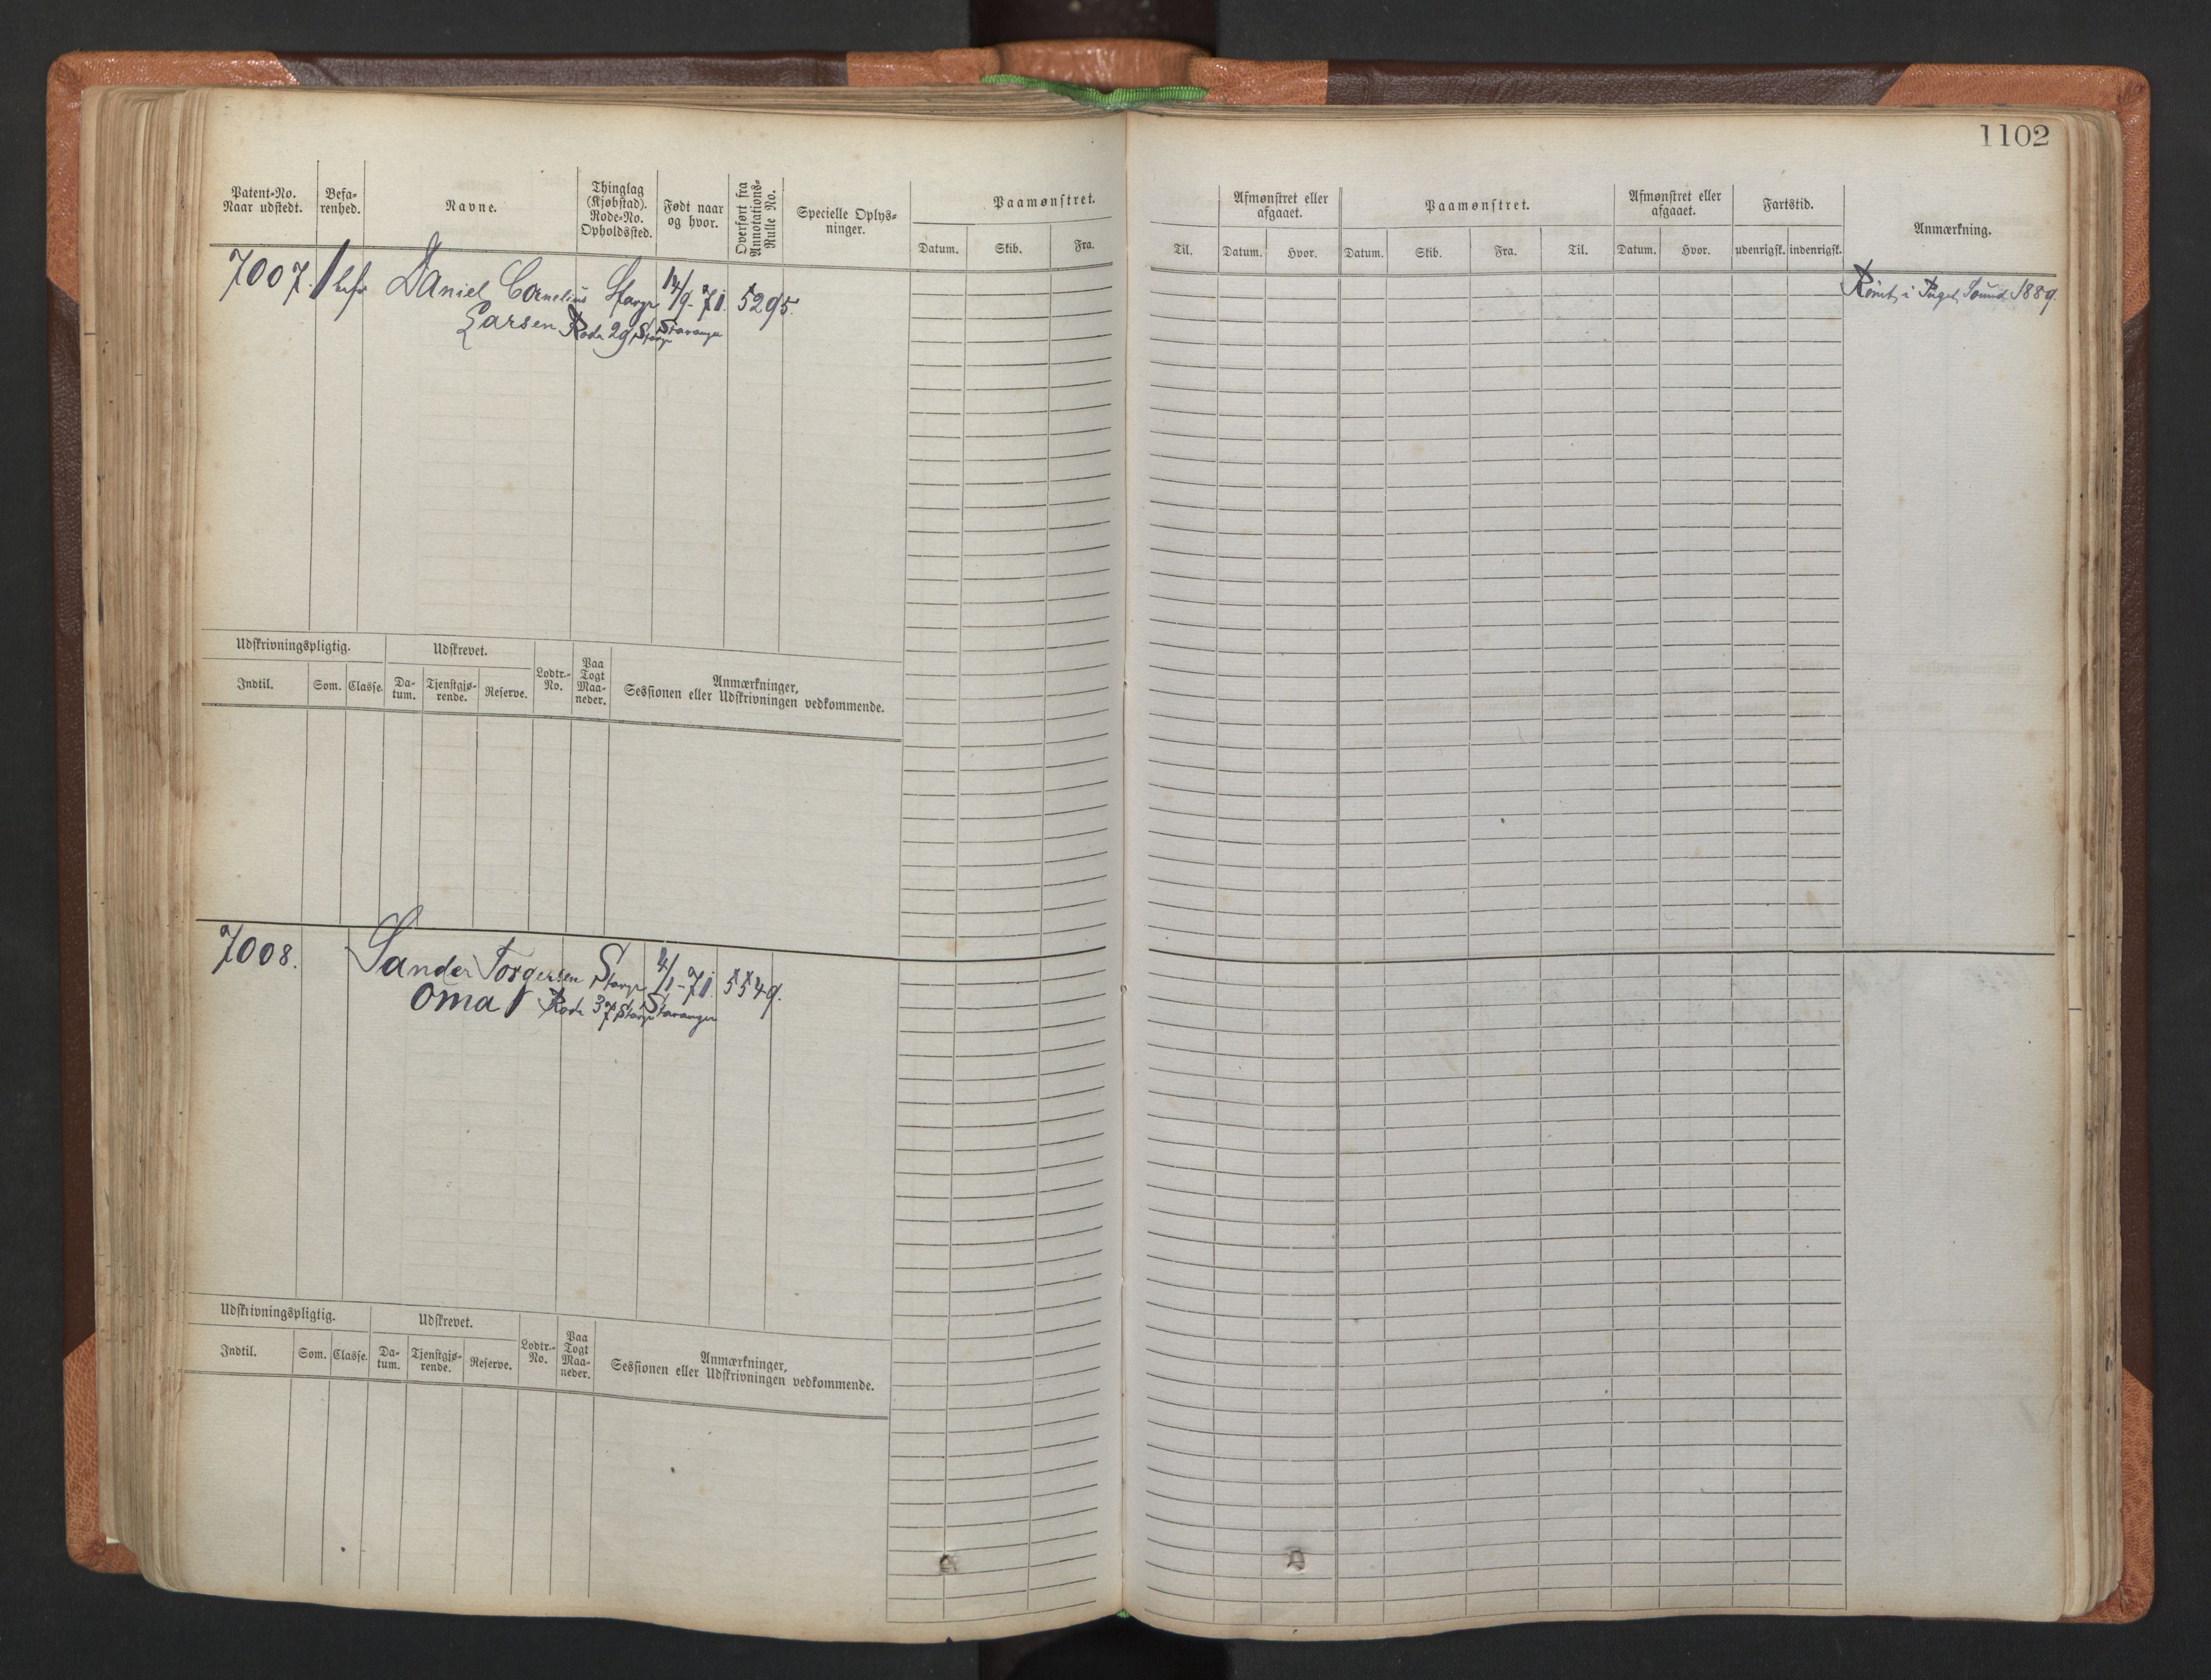 1102
Patent-No. Naar udstedt.
Befa-renhed.
Navne.
Thinglag (Kjøbstad). Rode-No. Opholdssted.
Født naar og hvor.
Overført fra Annotations-Rulle No.
Specielle Oplys-ninger.
Paamønstret.
Datum. Skib. Fra.
Til.
Afmønstret eller afgaaet.
Datum. Hvor.
Paamønstret.
Datum. Skib. Fra. Til.
Afmønstret eller afgaaet.
Datum. Hvor.
Fartstid.
udenrigsk. indenrigsk.
Anmærkning.
7007. 1 befr Daniel Cornelius Stavgr 14/9-71. 5295.
Larsen Rode 29 Stavgr Stavanger
Rømt i Puget Sound 1889.
Udskrivningspligtig.
Indtil. Som. Classe.
Udskrevet.
Da-tum. Tjenstgjø-rende. Reserve.
Lodtr.-No.
Paa Togt Maa-neder.
Anmærkninger,
Sessionen eller Udskrivningen vedkommende.
7008. Sander Torgersen Stavgr 4/1-71. 5549.
Oma Rode 37 Stavgr Stavanger
Udskrivningspligtig.
Indtil. Som. Classe.
Udskrevet.
Da-tum. Tjenstgjø-rende. Reserve.
Lodtr.-No.
Paa Togt Maa-neder.
Anmærkninger,
Sessionen eller Udskrivningen vedkommende.